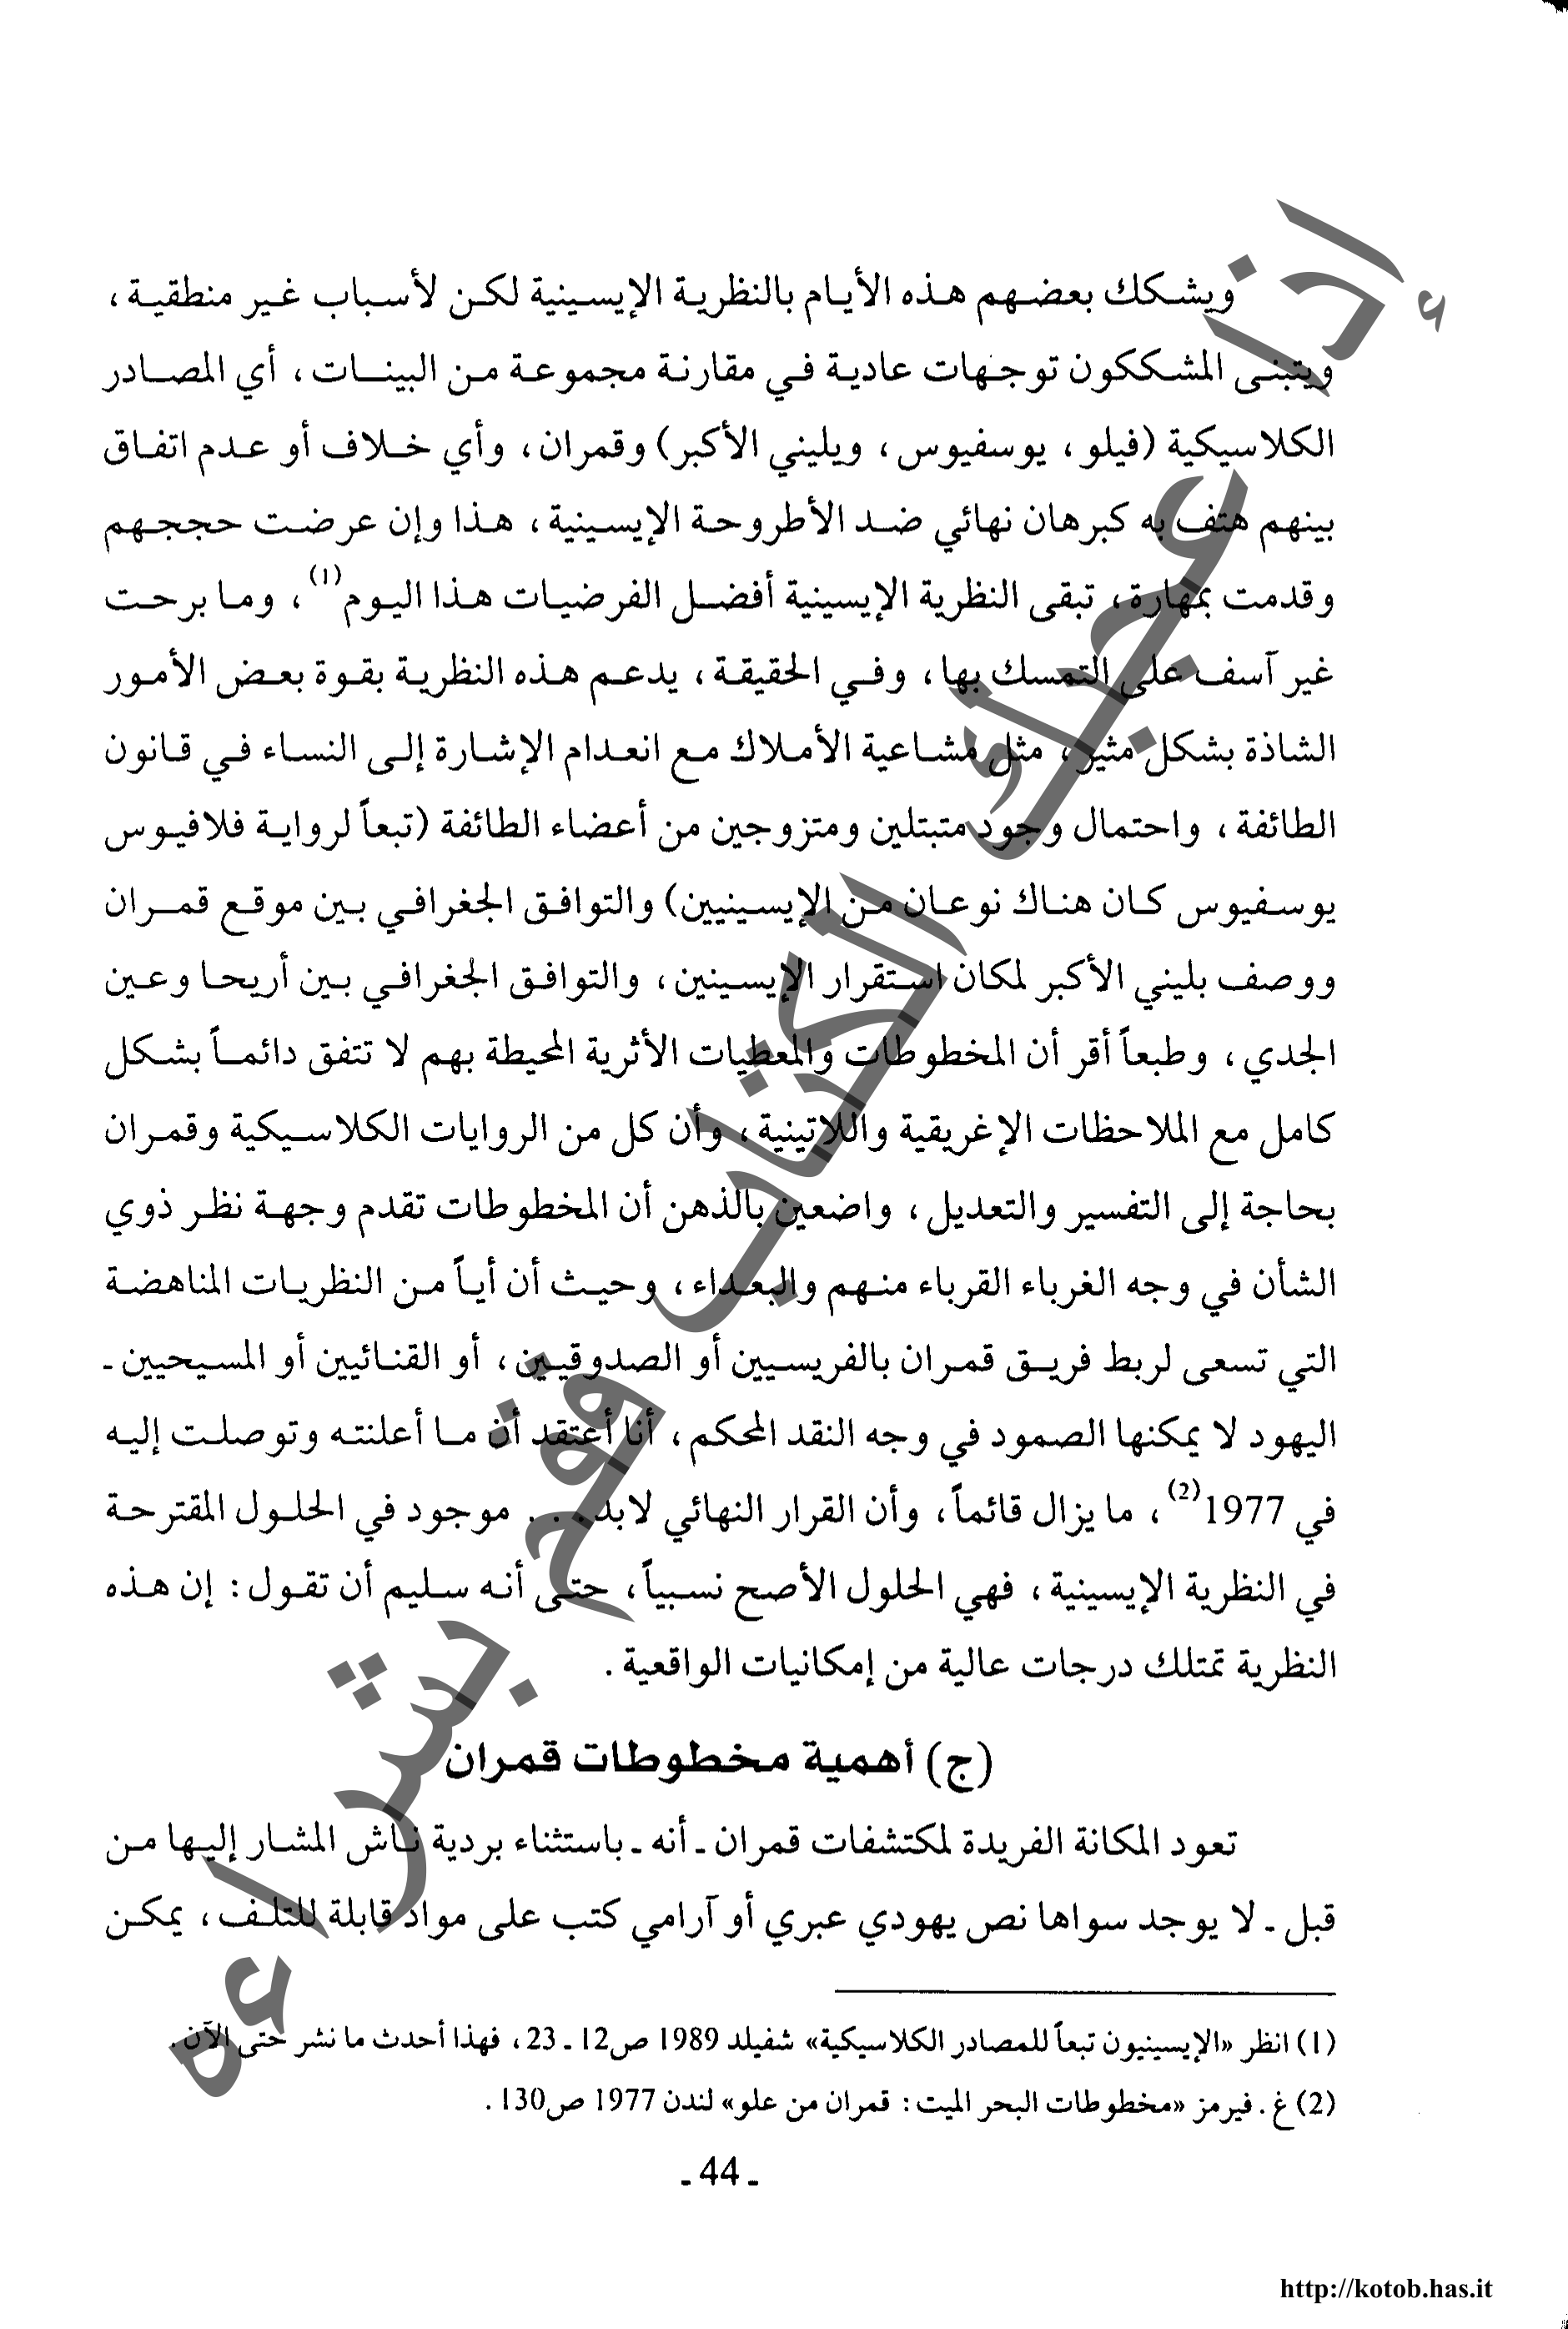 ويشكك بعضهم هذه الأيام بالنظرية الإيسينية لكن لأسباب غير منطقية،
ويتبنى المشككون توجهات عادية في مقارنة مجموعة من البينات، أي المصادر
الكلاسيكية (فيلو، يوسفيوس، ويليني الأكبر) وقمران، وأي خلاف أو عدم اتفاق
بينهم هتف به كبرهان نهائي ضد الأطروحة الإيسينية، هذا وإن عرضت حججهم
وقدمت بمهارة، تبقى النظرية الإيسينية أفضل الفرضيات هذا اليوم(1)، وما برحت
غير آسف على التمسك بها، وفي الحقيقة، يدعم هذه النظرية بقوة بعض الأمور
الشاذة بشكل مثير، مثل مشاعية الأملاك مع انعدام الإشارة إلى النساء في قانون
الطائفة، واحتمال وجود متبتلين ومتزوجين من أعضاء الطائفة (تبعاً لرواية فلافيوس
يوسفيوس كان هناك نوعان من الإيسينيين) والتوافق الجغرافي بين موقع قمران
ووصف بليني الأكبر لمكان استقرار الإيسينين، والتوافق الجغرافي بين أريحا وعين
الجدي، وطبعاً أقر أن المخطوطات والمعطيات الأثرية المحيطة بهم لا تتفق دائماً بشكل
كامل مع الملاحظات الإغريقية واللاتينية، وأن كل من الروايات الكلاسيكية وقمران
بحاجة إلى التفسير والتعديل، واضعين بالذهن أن المخطوطات تقدم وجهة نظر ذوي
الشأن في وجه الغرباء القرباء منهم والبعداء، وحيث أن أياً من النظريات المناهضة
التي تسعى لربط فريق قمران بالفريسيين أو الصدوقيين، أو القنائيين أو المسيحيين -
اليهود لا يمكنها الصمود في وجه النقد المحكم، أنا أعتقد أن ما أعلنته وتوصلت إليه
في 1977(2)، ما يزال قائماً، وأن القرار النهائي لابد... موجود في الحلول المقترحة
في النظرية الإيسينية، فهي الحلول الأصح نسبياً، حتى أنه سليم أن تقول: إن هذه
النظرية تمتلك درجات عالية من إمكانيات الواقعية.
(ج) أهمية مخطوطات قمران
تعود المكانة الفريدة لمكتشفات قمران - أنه - باستثناء بردية ناش المشار إليها من
قبل - لا يوجد سواها نص يهودي عبري أو آرامي كتب على مواد قابلة للتلف، يمكن
(1) انظر «الإيسينيون تبعاً للمصادر الكلاسيكية» شفيلد 1989 ص12 - 23، فهذا أحدث ما نشر حتى الآن.
(2) غ. فيرمز «مخطوطات البحر الميت: قمران من علو» لندن 1977 ص130.
- 44 -
http://kotob.has.it
أذا عجبك الكتاب قم بشراءه